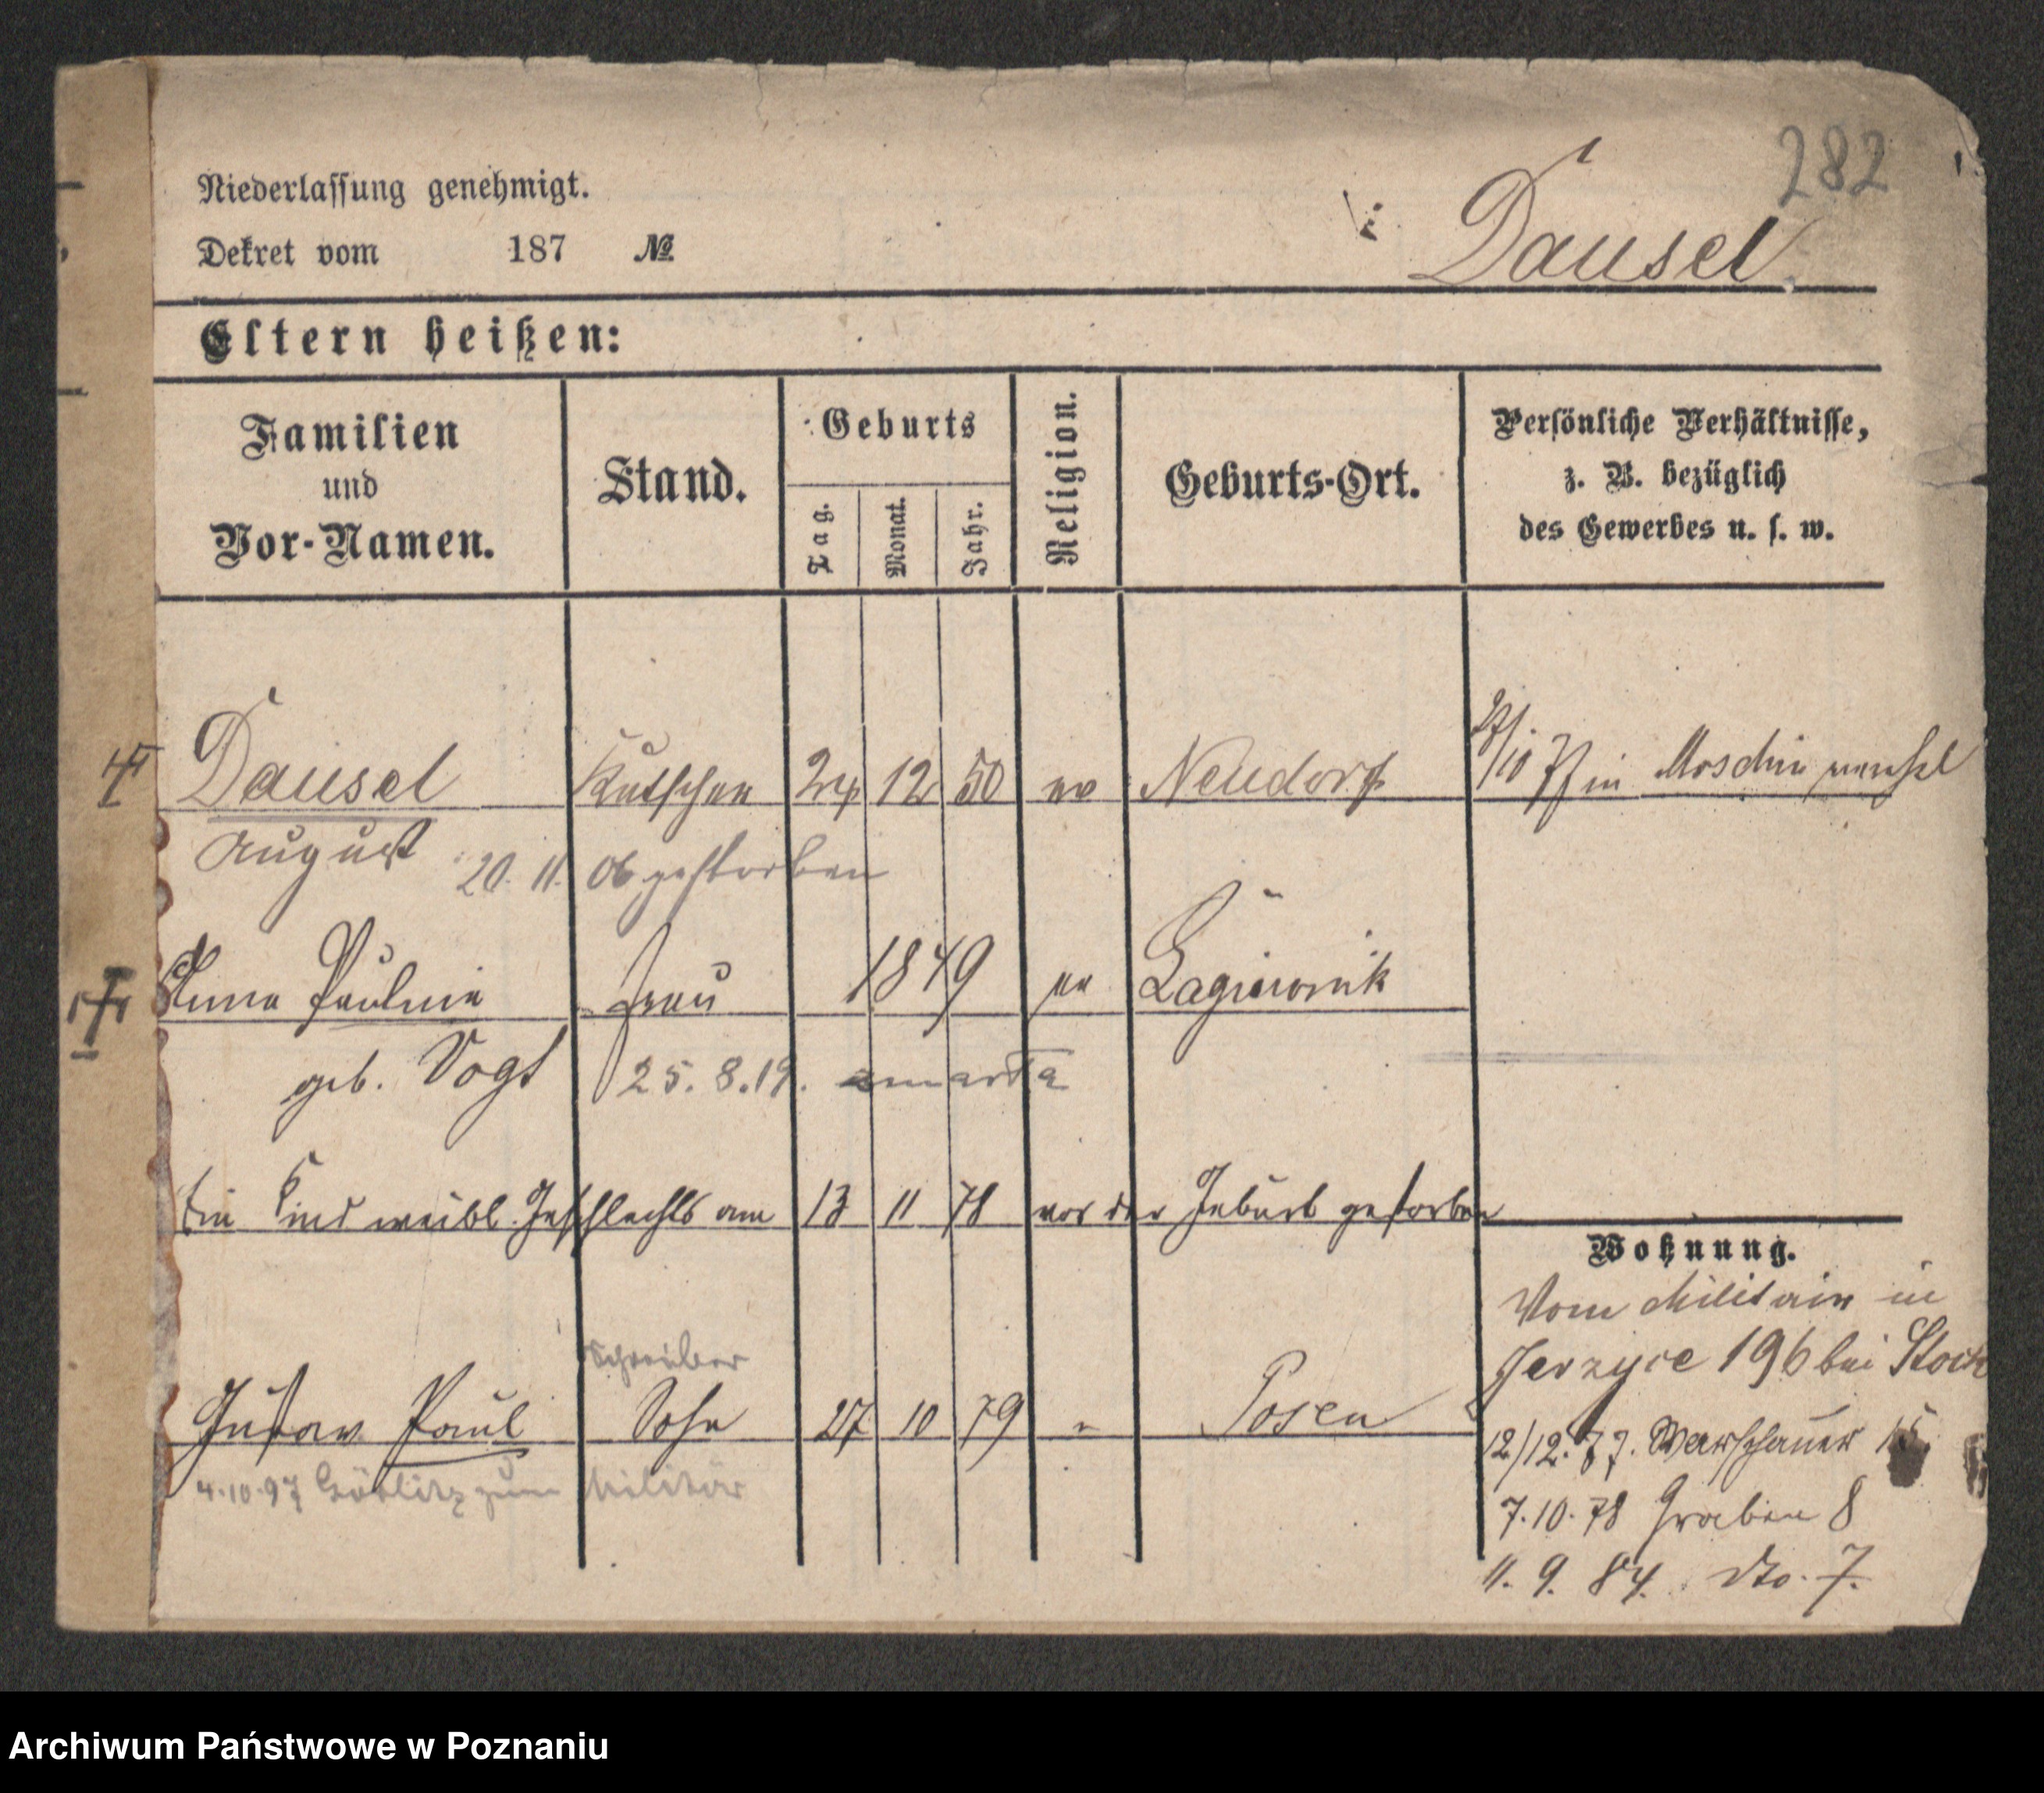 282
Niederlassung genehmigt.
Dekret vom 187 №
Dausel.
Eltern heißen:
Familien und Vor-Namen.
Stand.
Geburts
Tag.
Monat.
Jahr.
Religion.
Geburts-Ort.
Persönliche Verhältnisse,
z. B. bezüglich
des Gewerbes u. s. w.
Dausel Kutscher 12 50 ev Neudorf in Moschin
August 20. 11. 06 gestorben
Anna Pauline Frau 1849 ev Lagiewnik
geb. Vogt 25. 8. 19. zmarła
Ein Kind weibl. Geschlechts am 13 11 78 vor der Geburt gestorben
Schreiber
Gustav Paul Sohn 27 10 79 " Posen
4.10.97 Görlitz zum Militär
Wohnung.
Vom Militair in
Jerzyce 196 bei Stock
12/12. 77. Warschauer 15.
7.10.78 Graben 8
11. 9. 84. dto. 7.
Archiwum Państwowe w Poznaniu